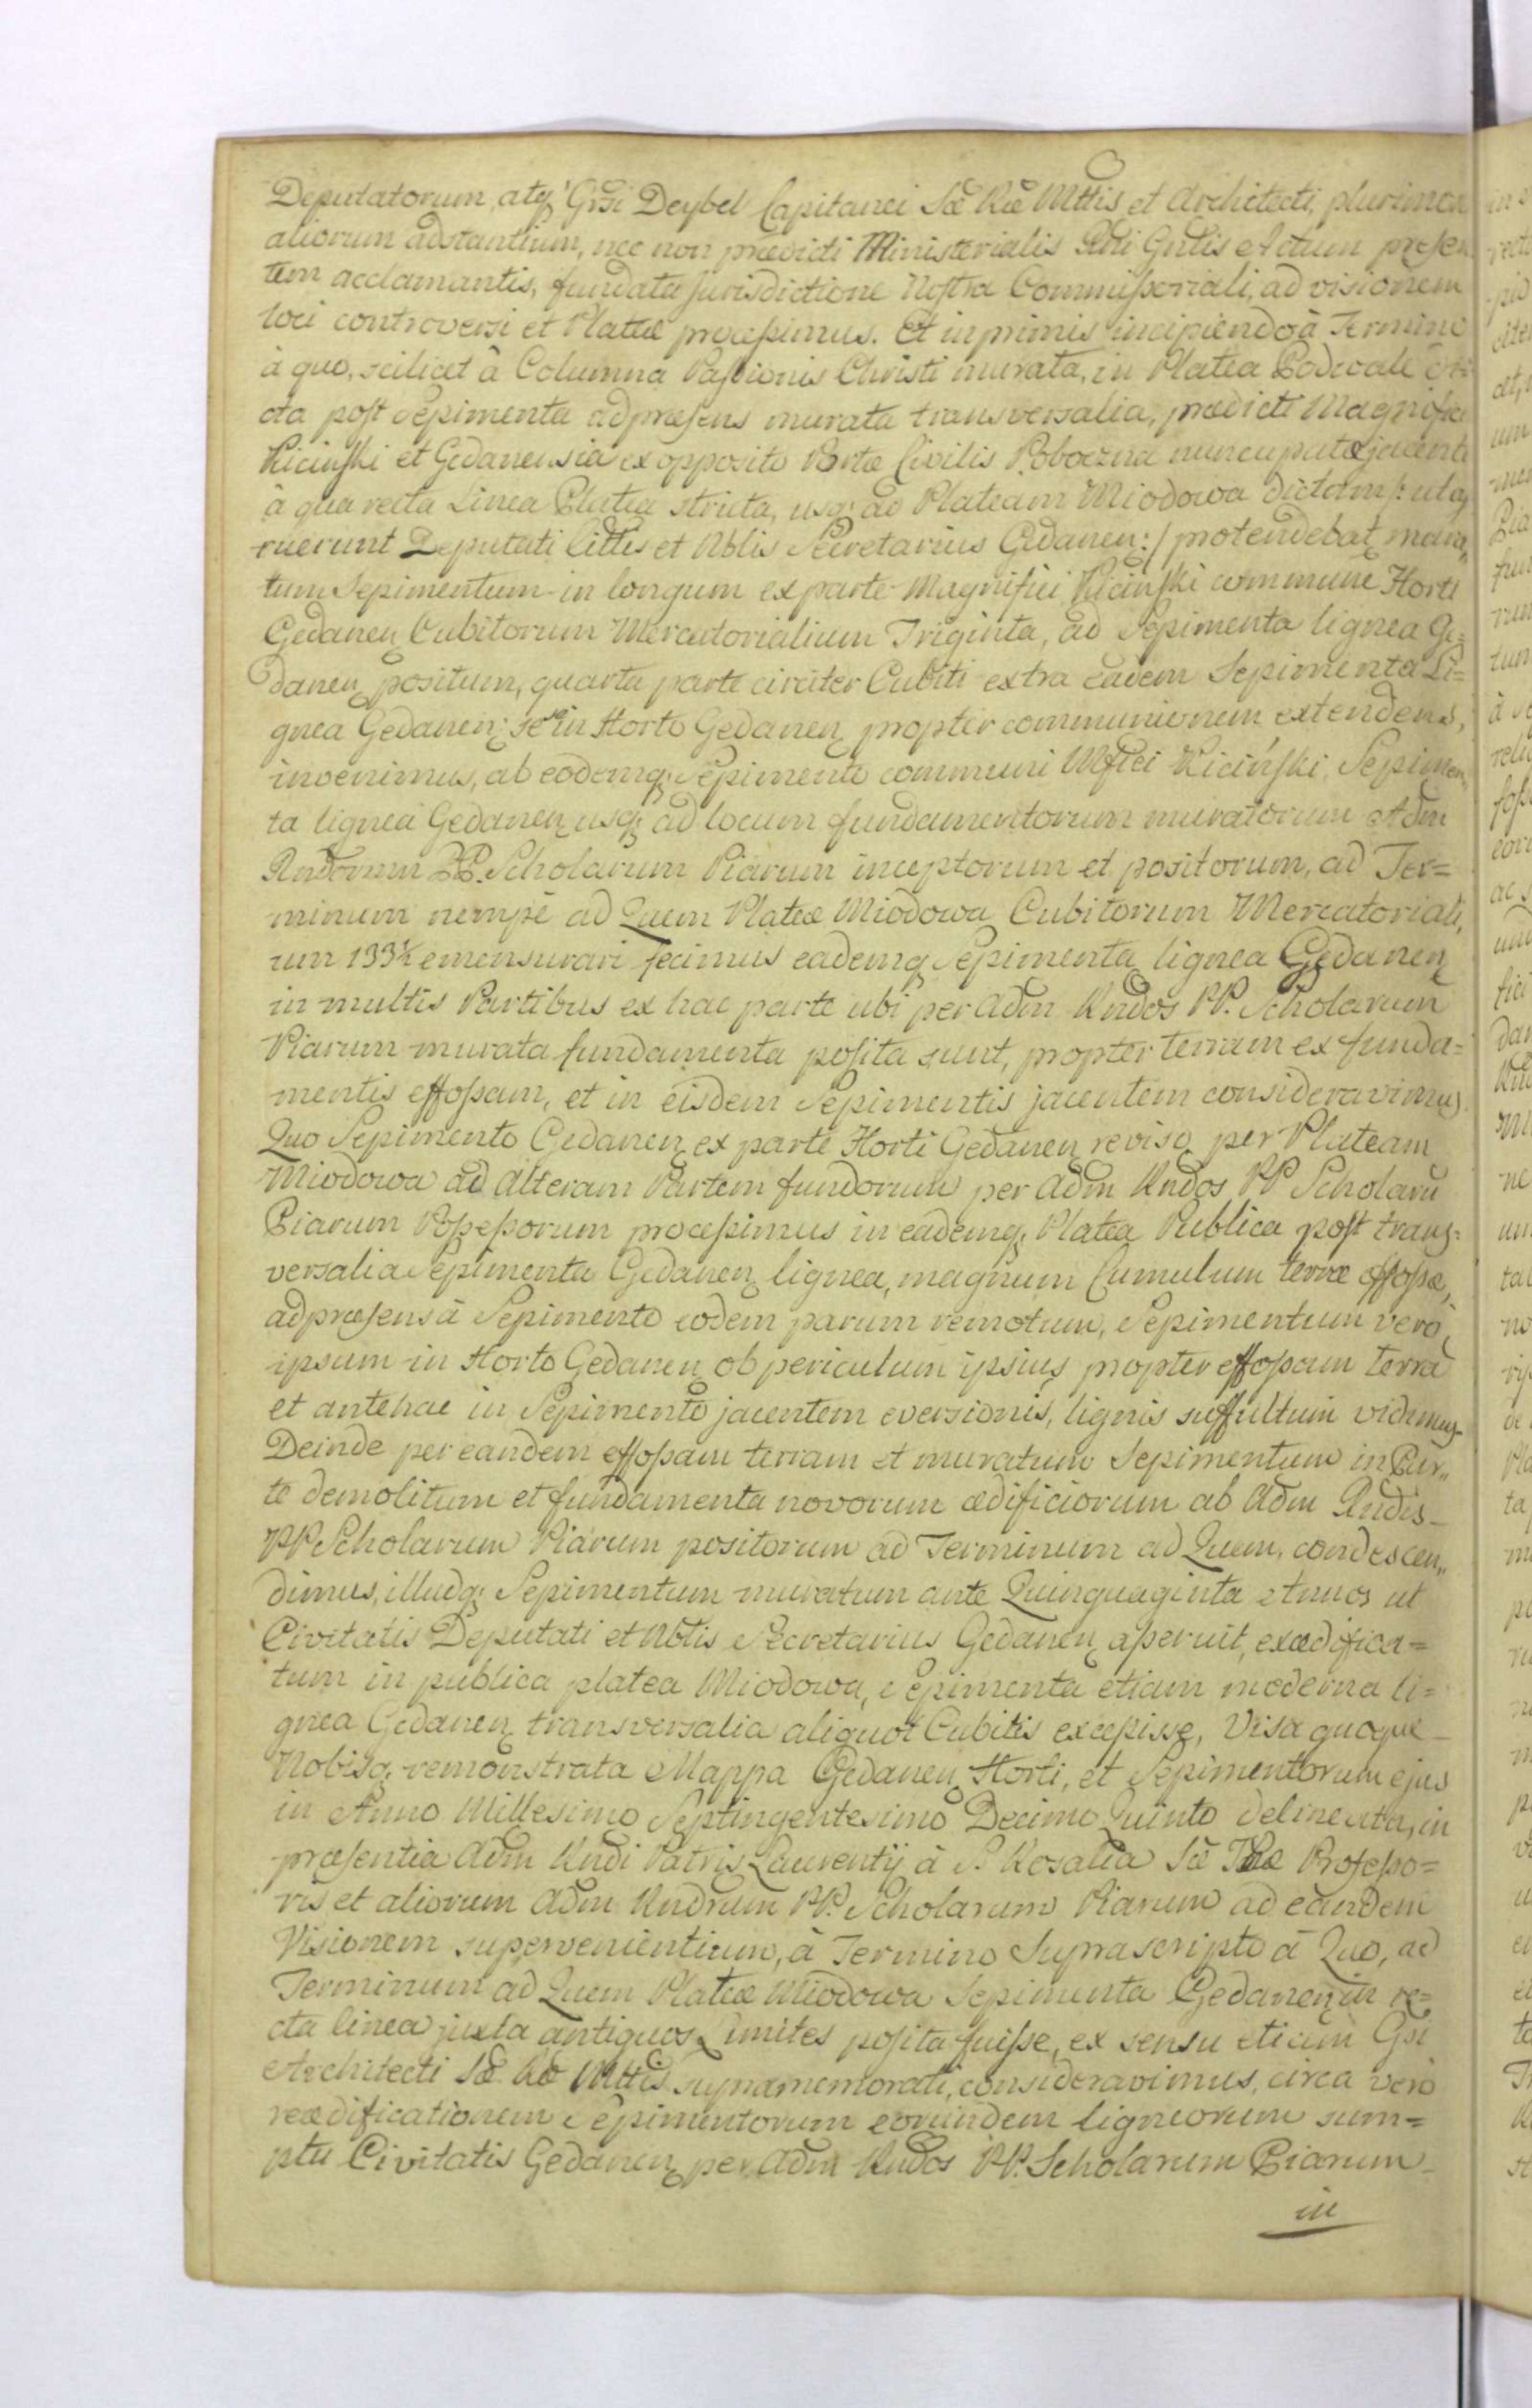 Deputatorum, atq' Grsi Deybel Capitanei Sæ Ræ Mttis et Architecti, plurimor
aliorum adstantium, nec non prædicti Ministerialis Rdi Gnlis Actum præsen
tem acclamantis, fundata Jurisdictione Nostra Commissoriali, ad visionem
loci controversi et Plateæ processimus. Et inprimis incipiendo à Termino
à quo, scilicet à Columna Passionis Christi murata, in Platea Podwale
cta post Sepimenta adpræsens murata transversalia, prædicti Magnifici
Kicinski et Gedanensia ex opposito Portæ Civilis Poboczna nuncupatæ jacenti
à qua recta Linea Platea stricta, usq: ad Plateam Miodowa dictam /: uta
ruerunt Deputati Cittis et Nblis Secretarius Gedanen: / protendebat mura,,
tum Sepimentum in longum ex parte Magnifici Kicinski commune Horti
Gedanen Cubitorum Mercatorialium Triginta, ad Sepimenta lignea Ge=
danen positum, quarta parte circiter Cubiti extra eadem Sepimenta Li=
gnea Gedanen: se in Horto Gedanen propter communionem extendens,
invenimus, ab eodemq: Sepimento communi Mfici Kiciński, Sepimen
ta lignea Gedanen usq: ad locum fundamentorum muratorum Adm
Rndorum PP. Scholarum Piarum inceptorum et positorum, ad Ter=
minum nempè ad Quem Plateæ Miodowa Cubitorum Mercatoriali,
um 133½ emensurari fecimus eademq Sepimenta lignea Gedanen
in multis Partibus ex hac parte ubi per Adm Rndos PP. Scholarum
Piarum murata fundamenta posita sunt, propter terram ex funda=
mentis effossam, et in eisdem Sepimentis jacentem consideravimus
Quo Sepimento Gedanen ex parte Horti Gedanen reviso, per Plateam
Miodowa ad Alteram Partem fundorum per Adm Rndos PP Scholarū
Piarum Possessorum processimus in eademq: Platea Publica post trans=
versalia Sepimenta Gedanen lignea, magnum Cumulum terræ effossæ,
adpræsens à Sepimento eodem parum remotum, Sepimentum verò
ipsum in Horto Gedanen ob periculum ipsius propter effossam terrā
et antehac in Sepimento jacentem eversionis, lignis suffultum vidimus
Deinde per eandem effossam terram et muratum Sepimentum in Par,,
te demolitum et fundamenta novorum ædificiorum ab Adm Rndis
PP Scholarum Piarum positorum ad Terminum ad Quem, condescen,,
dimus, illudq: Sepimentum muratum ante Quinquaginta Annos ut
Civitatis Deputati et Nblis Secretarius Gedanen asseruit, exædifica=
tum in publica platea Miodowa, Sepimenta etiam moderna li=
gnea Gedanen transversalia aliquot Cubitis excepisse, Visa quoque
Nobisq. remonstrata Mappa Gedanen Horti, et Sepimentorum ejus
in Anno Millesimo Septingentesimo Decimo Quinto delineata, in
præsentia Adm Rndi Patris Laurentij à S. Rosalia Sæ Thæ Professo=
ris et aliorum Adm Rndrum PP. Scholarum Piarum ad eandem
Visionem supervenientium, à Termino Suprascripto à Quo, ad
Terminum ad Quem Plateæ Miodowa Sepimenta Gedanen in re=
cta linea juxta antiquos Limites posita fuisse, ex sensu etiam Gsi
Architecti Sæ Ræ Mttis supramemorati, consideravimus, circa verò
reædificationem Sepimentorum eorundem ligneorum sum=
ptu Civitatis Gedanen per Adm Rndos PP. Scholarum Piarum
in